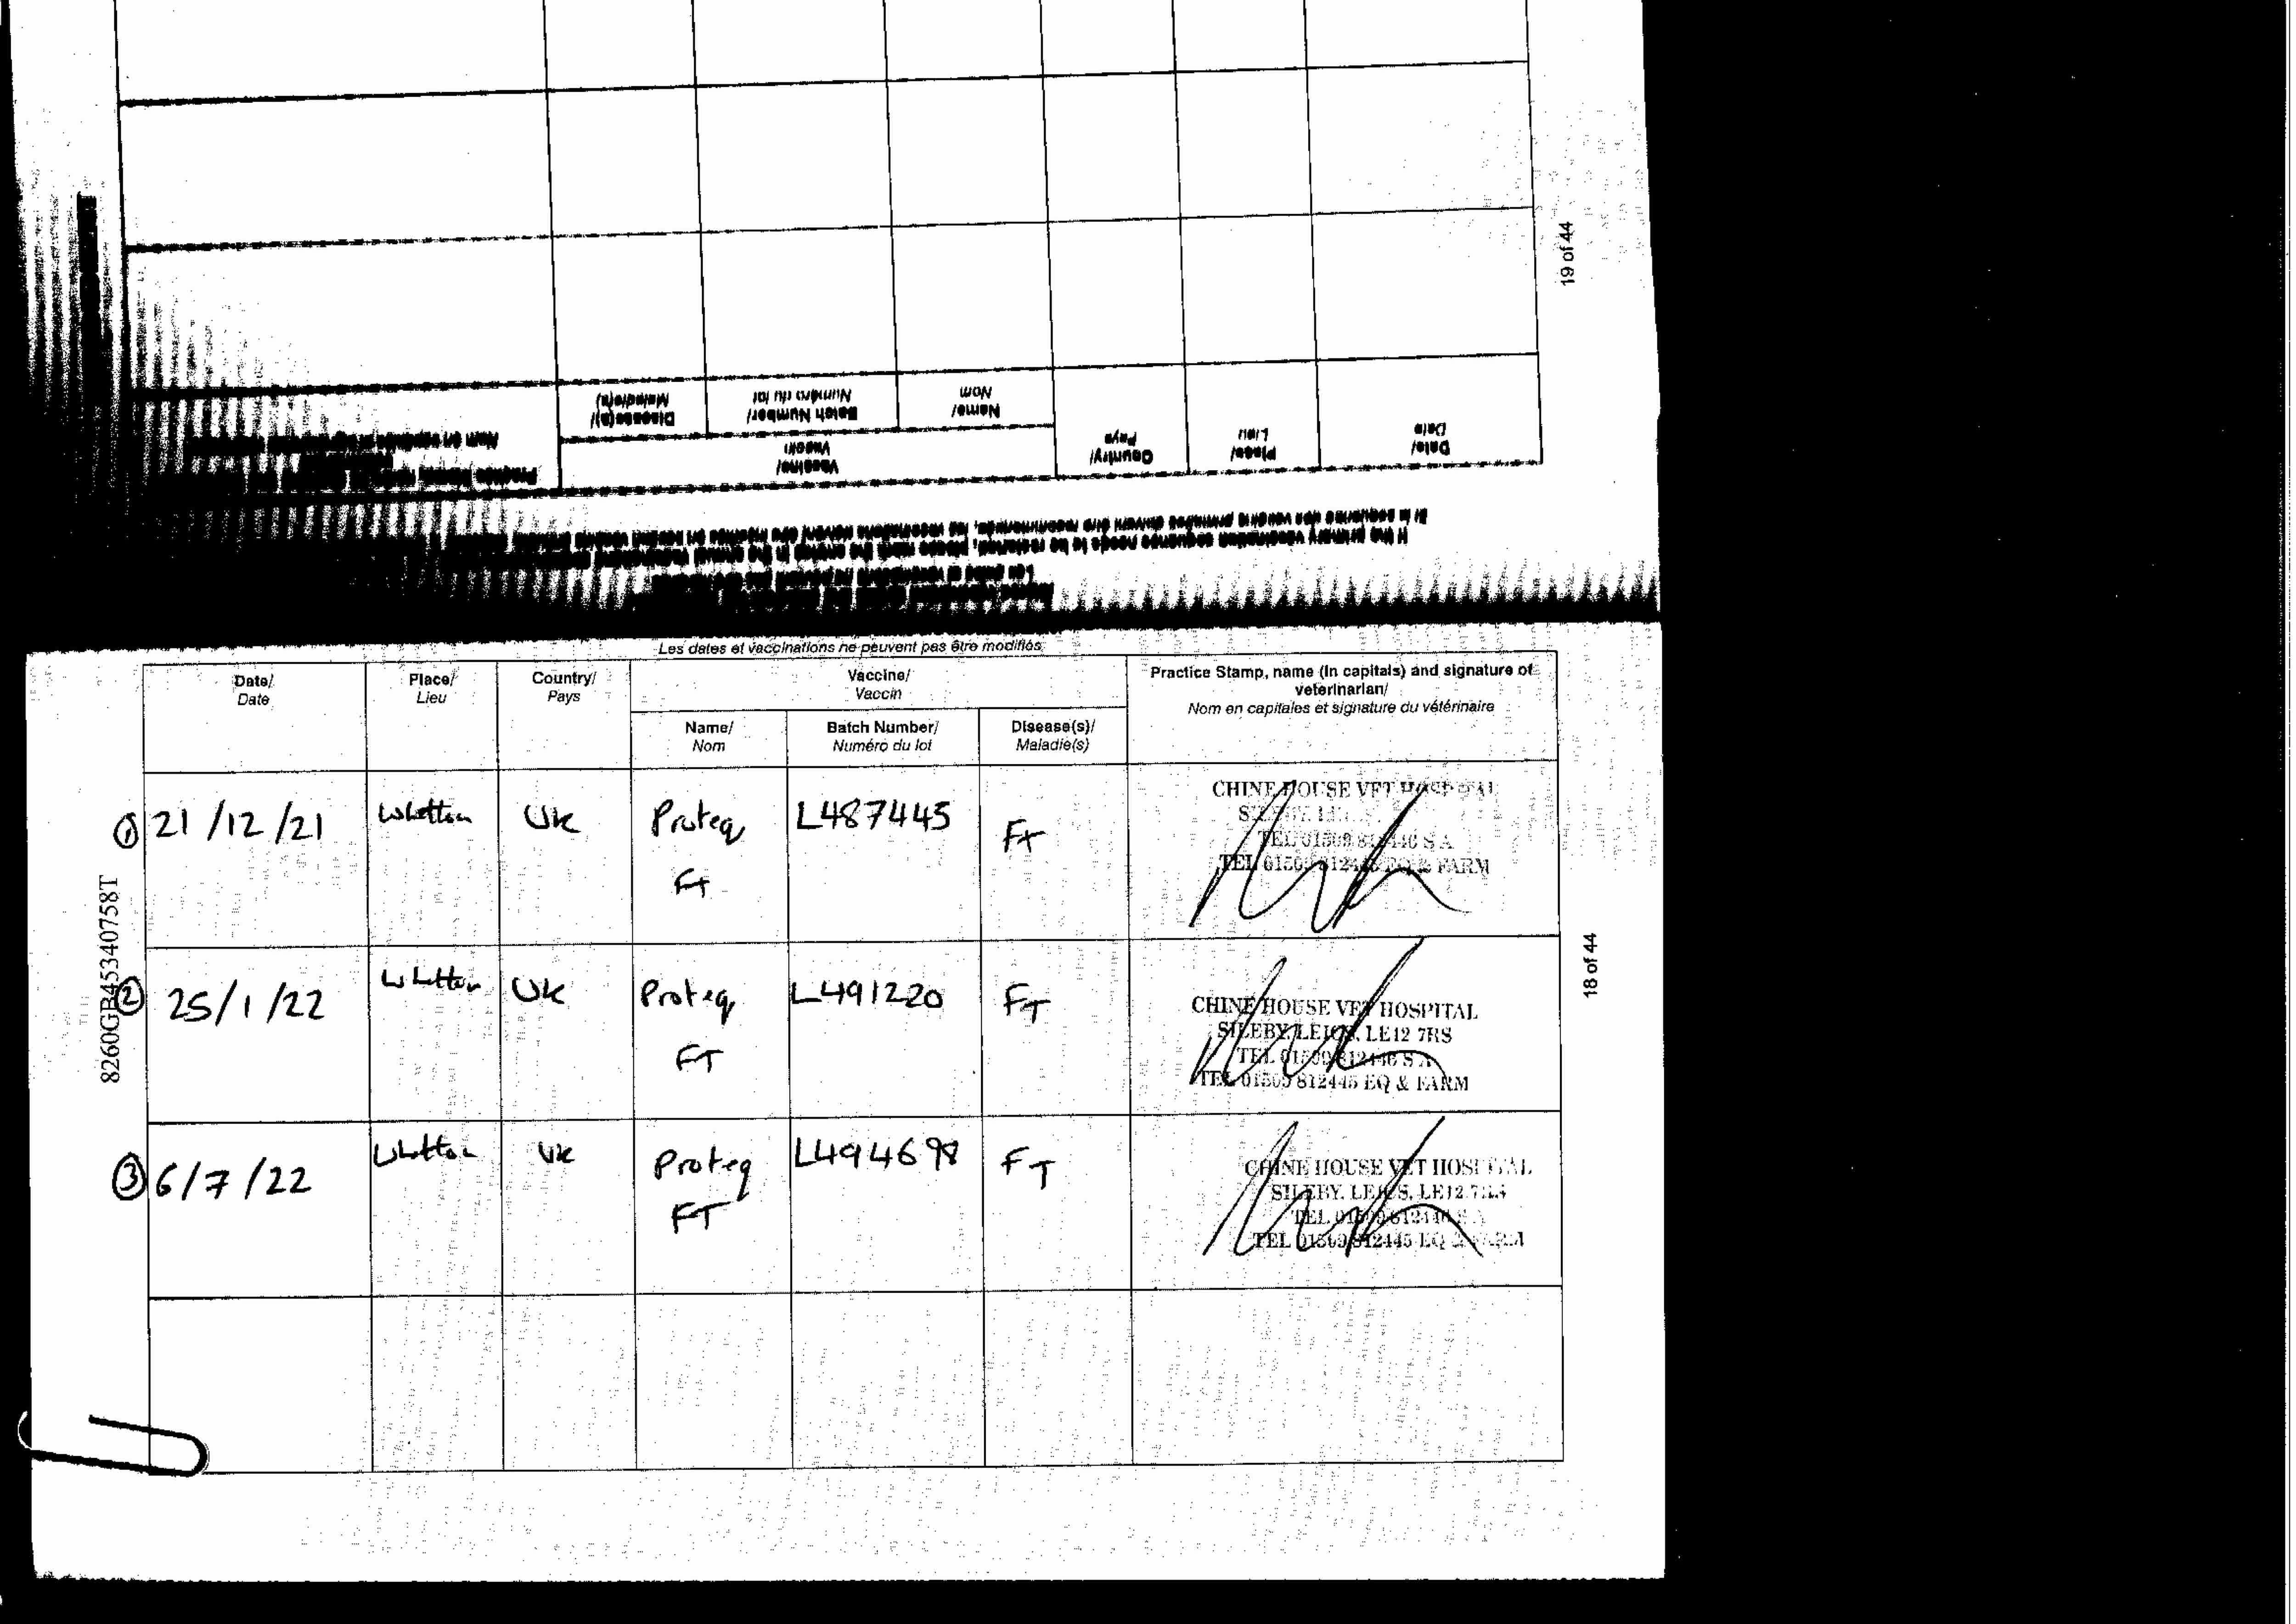 19 of 44
Date/
Date
Place/
Lieu
Country/
Pays
Vaccine/
Vaccin
Name/
Nom
Batch Number/
Numéro du lot
Disease(s)/
Maladie(s)
If the primary vaccination sequence needs to be restarted, please mark the entries in the
Les dates et vaccinations ne peuvent pas être modifiés
Date/
Date
Place/
Lieu
Country/
Pays
Vaccine/
Vaccin
Practice Stamp, name (in capitals) and signature of
veterinarian/
Nom en capitales et signature du vétérinaire
Name/
Nom
Batch Number/
Numéro du lot
Disease(s)/
Maladie(s)
① 21/12/21 Whetton UK Proteq L487445 FT
FT
CHINE HOUSE VET HOSPITAL
TEL 01509 812446 S A
TEL 01509 812445 EQ & FARM
② 25/1/22 Whetton UK Proteq L491220 FT
FT
CHINE HOUSE VET HOSPITAL
SILEBY, LEICS, LE12 7RS
TEL 01509 812446 S A
TEL 01509 812445 EQ & FARM
③ 6/7/22 Whetton UK Proteq L494698 FT
FT
CHINE HOUSE VET HOSPITAL
SILEBY, LEICS, LE12 7RS
TEL 01509 812446 S A
TEL 01509 812445 EQ & FARM
8260GB45340758T
18 of 44